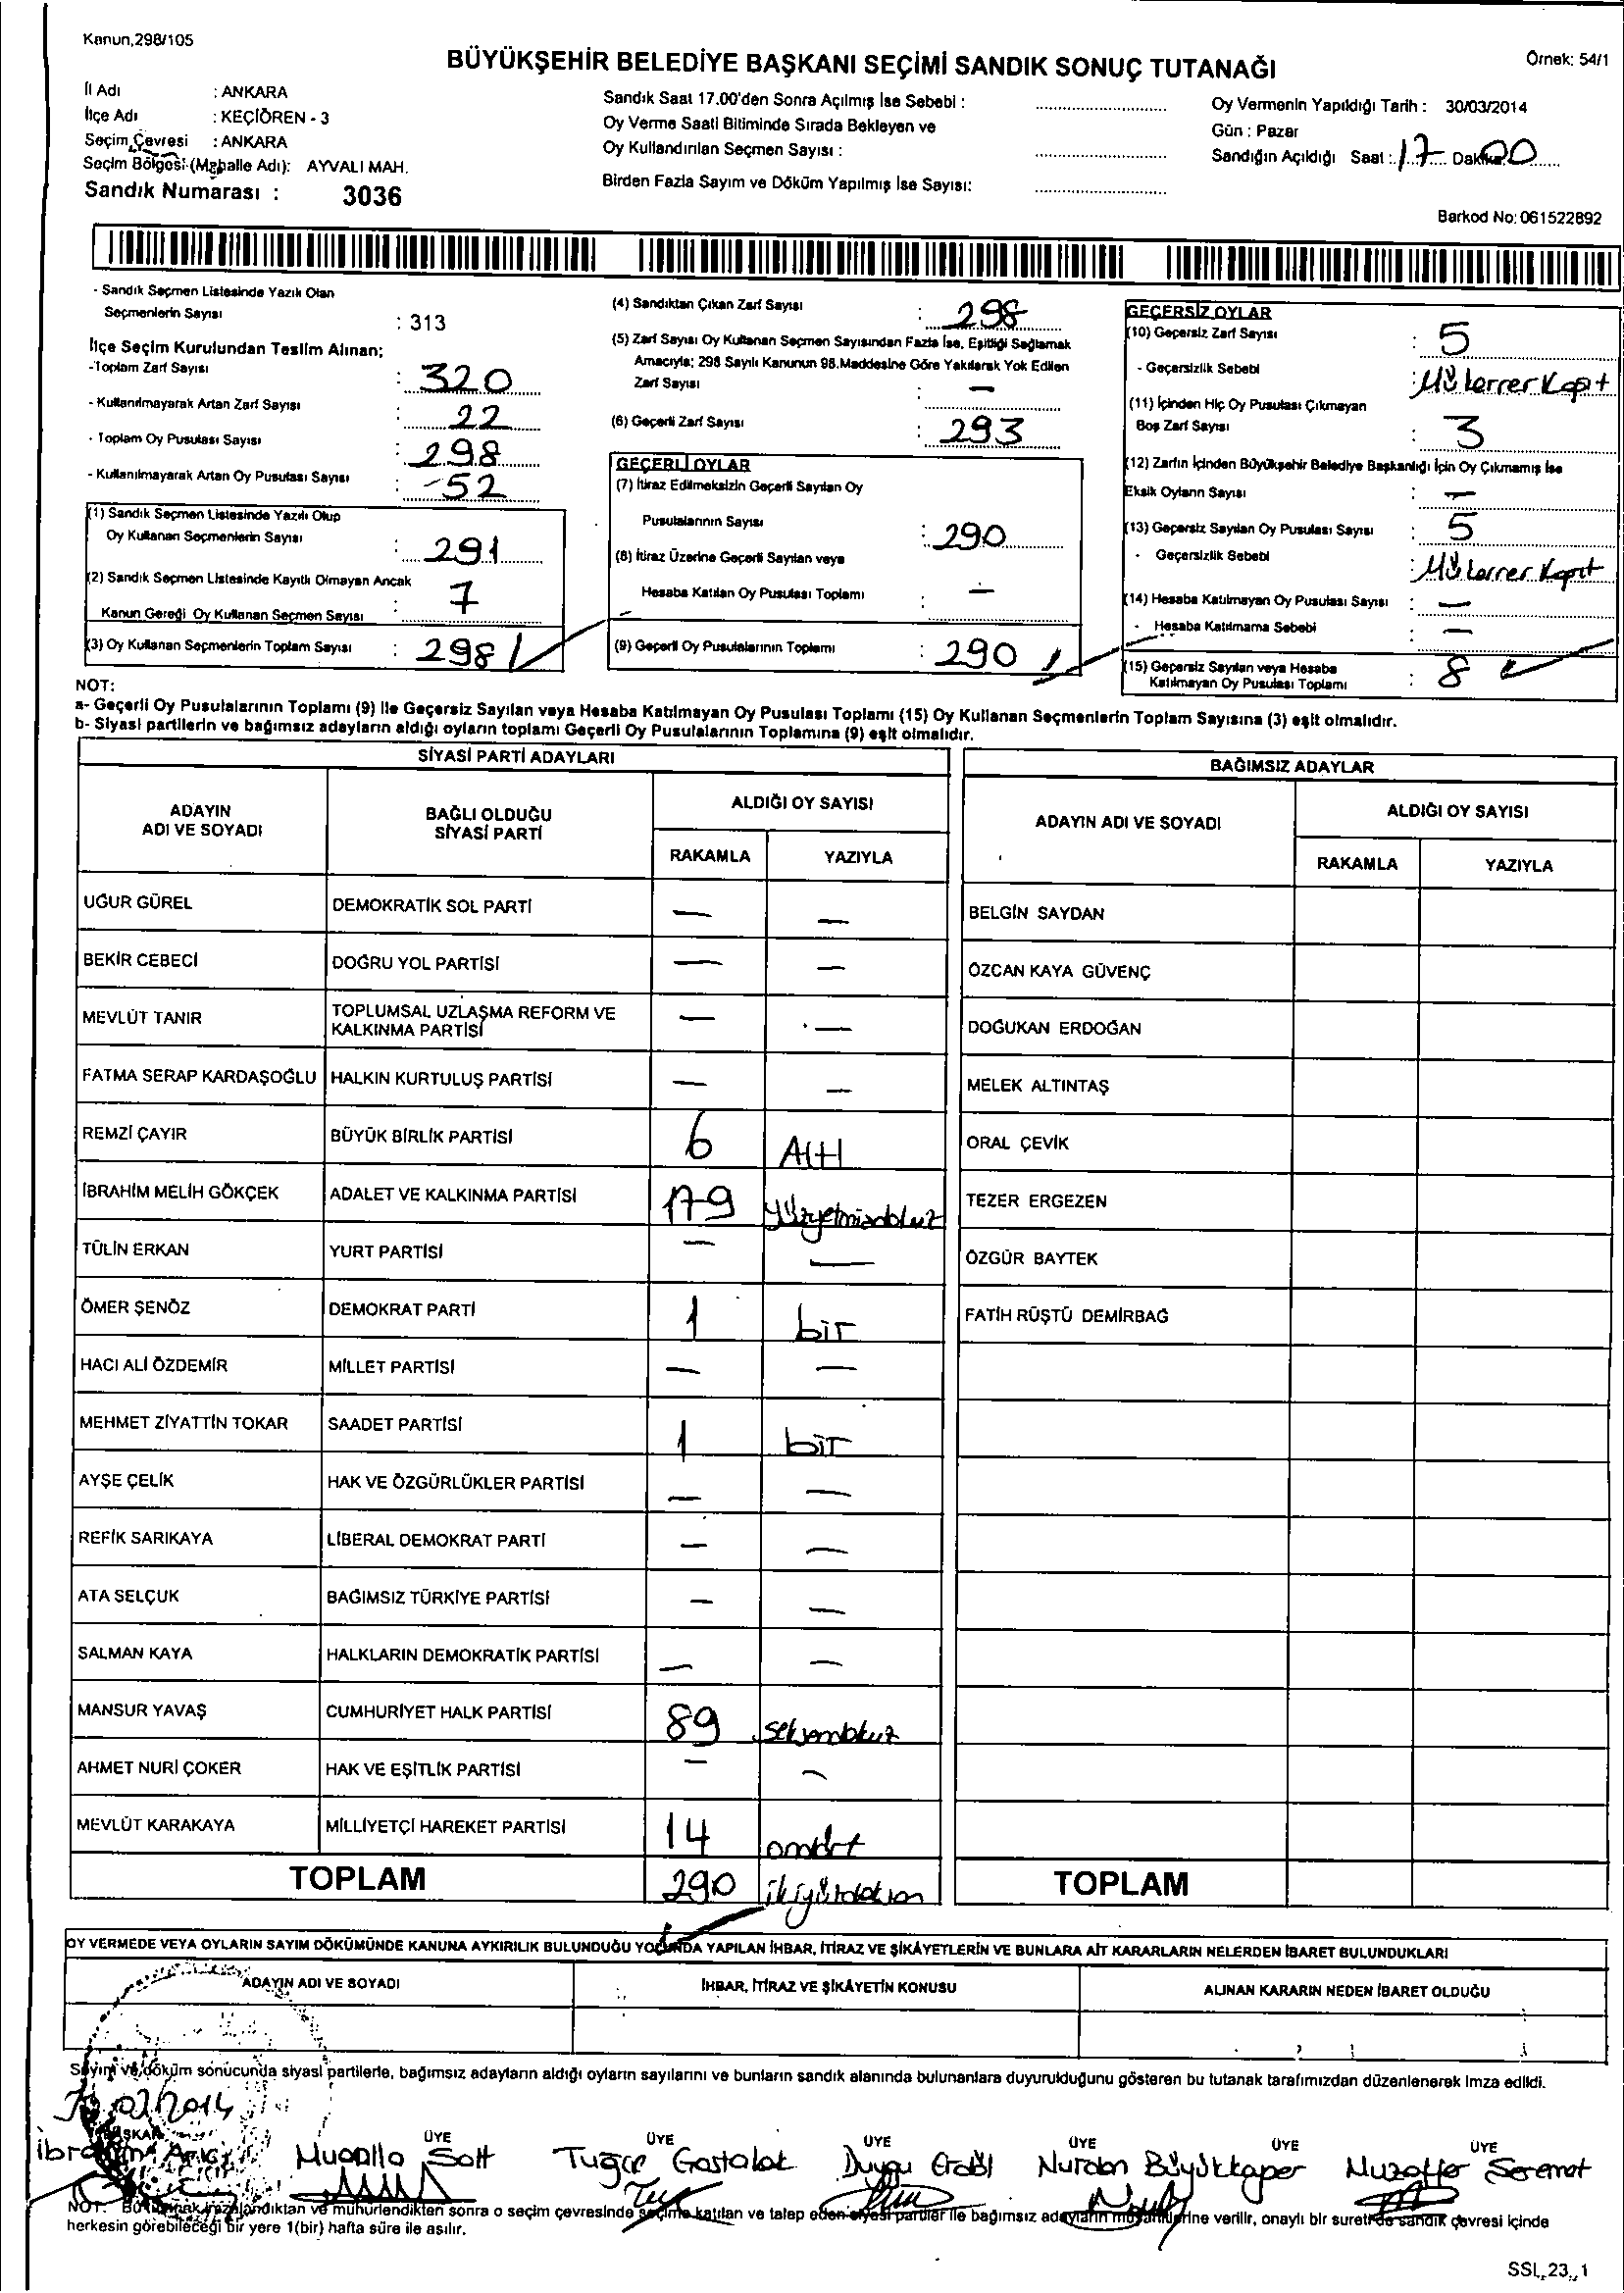 Kanun,298/105
BÜYÜKŞEHİR BELEDİYE BAŞKANI SEÇİMİ SANDIK SONUÇ TUTANAĞI
Örnek: 54/1
İl Adı : ANKARA
İlçe Adı : KEÇİÖREN - 3
Seçim Çevresi : ANKARA
Seçim Bölgesi (Mahalle Adı): AYVALI MAH.
Sandık Numarası : 3036
Sandık Saat 17.00'den Sonra Açılmış İse Sebebi :
Oy Verme Saati Bitiminde Sırada Bekleyen ve
Oy Kullandırılan Seçmen Sayısı :
Birden Fazla Sayım ve Döküm Yapılmış İse Sayısı:
Oy Vermenin Yapıldığı Tarih : 30/03/2014
Gün : Pazar
Sandığın Açıldığı Saat : 17 Dakika 00
Barkod No: 061522892
- Sandık Seçmen Listesinde Yazılı Olan
Seçmenlerin Sayısı : 313
İlçe Seçim Kurulundan Teslim Alınan;
-Toplam Zarf Sayısı : 320
- Kullanılmayarak Artan Zarf Sayısı : 22
- Toplam Oy Pusulası Sayısı : 298
- Kullanılmayarak Artan Oy Pusulası Sayısı : 52
(1) Sandık Seçmen Listesinde Yazılı Olup
Oy Kullanan Seçmenlerin Sayısı : 291
(2) Sandık Seçmen Listesinde Kayıtlı Olmayan Ancak
Kanun Gereği Oy Kullanan Seçmen Sayısı : 7
(3) Oy Kullanan Seçmenlerin Toplam Sayısı : 298
(4) Sandıktan Çıkan Zarf Sayısı : 298
(5) Zarf Sayısı Oy Kullanan Seçmen Sayısından Fazla İse, Eşitliği Sağlamak
Amacıyla; 298 Sayılı Kanunun 98.Maddesine Göre Yakılarak Yok Edilen
Zarf Sayısı : -
(6) Geçerli Zarf Sayısı : 293
GEÇERLİ OYLAR
(7) İtiraz Edilmeksizin Geçerli Sayılan Oy
Pusulalarının Sayısı : 290
(8) İtiraz Üzerine Geçerli Sayılan veya
Hesaba Katılan Oy Pusulası Toplamı : -
(9) Geçerli Oy Pusulalarının Toplamı : 290
GEÇERSİZ OYLAR
(10) Geçersiz Zarf Sayısı : 5
- Geçersizlik Sebebi : Mükerrer Kapıt
(11) İçinden Hiç Oy Pusulası Çıkmayan
Boş Zarf Sayısı : 3
(12) Zarfın İçinden Büyükşehir Belediye Başkanlığı İçin Oy Çıkmamış İse
Eksik Oyların Sayısı : -
(13) Geçersiz Sayılan Oy Pusulası Sayısı : 5
- Geçersizlik Sebebi : Mükerrer Kapıt
(14) Hesaba Katılmayan Oy Pusulası Sayısı : -
- Hesaba Katılmama Sebebi : -
(15) Geçersiz Sayılan veya Hesaba
Katılmayan Oy Pusulası Toplamı : 8
NOT:
a- Geçerli Oy Pusulalarının Toplamı (9) İle Geçersiz Sayılan veya Hesaba Katılmayan Oy Pusulası Toplamı (15) Oy Kullanan Seçmenlerin Toplam Sayısına (3) eşit olmalıdır.
b- Siyasi partilerin ve bağımsız adayların aldığı oyların toplamı Geçerli Oy Pusulalarının Toplamına (9) eşit olmalıdır.
SİYASİ PARTİ ADAYLARI
ADAYIN ADI VE SOYADI BAĞLI OLDUĞU SİYASİ PARTİ ALDIĞI OY SAYISI
RAKAMLA YAZIYLA
UĞUR GÜREL DEMOKRATİK SOL PARTİ - -
BEKİR CEBECİ DOĞRU YOL PARTİSİ - -
MEVLÜT TANIR TOPLUMSAL UZLAŞMA REFORM VE KALKINMA PARTİSİ - -
FATMA SERAP KARDAŞOĞLU HALKIN KURTULUŞ PARTİSİ - -
REMZİ ÇAYIR BÜYÜK BİRLİK PARTİSİ 6 Altı
İBRAHİM MELİH GÖKÇEK ADALET VE KALKINMA PARTİSİ 179 yüzyetmişdokuz
TÜLİN ERKAN YURT PARTİSİ - -
ÖMER ŞENÖZ DEMOKRAT PARTİ 1 bir
HACI ALİ ÖZDEMİR MİLLET PARTİSİ - -
MEHMET ZİYATTİN TOKAR SAADET PARTİSİ 1 bir
AYŞE ÇELİK HAK VE ÖZGÜRLÜKLER PARTİSİ - -
REFİK SARIKAYA LİBERAL DEMOKRAT PARTİ - -
ATA SELÇUK BAĞIMSIZ TÜRKİYE PARTİSİ - -
SALMAN KAYA HALKLARIN DEMOKRATİK PARTİSİ - -
MANSUR YAVAŞ CUMHURİYET HALK PARTİSİ 89 seksendokuz
AHMET NURİ ÇOKER HAK VE EŞİTLİK PARTİSİ - -
MEVLÜT KARAKAYA MİLLİYETÇİ HAREKET PARTİSİ 14 ondört
TOPLAM 290 ikiyüzdoksan
BAĞIMSIZ ADAYLAR
ADAYIN ADI VE SOYADI ALDIĞI OY SAYISI
RAKAMLA YAZIYLA
BELGİN SAYDAN
ÖZCAN KAYA GÜVENÇ
DOĞUKAN ERDOĞAN
MELEK ALTINTAŞ
ORAL ÇEVİK
TEZER ERGEZEN
ÖZGÜR BAYTEK
FATİH RÜŞTÜ DEMİRBAĞ
TOPLAM
OY VERMEDE VEYA OYLARIN SAYIM DÖKÜMÜNDE KANUNA AYKIRILIK BULUNDUĞU YOLUNDA YAPILAN İHBAR, İTİRAZ VE ŞİKÂYETLERİN VE BUNLARA AİT KARARLARIN NELERDEN İBARET BULUNDUKLARI
ADAYIN ADI VE SOYADI İHBAR, İTİRAZ VE ŞİKÂYETİN KONUSU ALINAN KARARIN NEDEN İBARET OLDUĞU
Sayım ve döküm sonucunda siyasi partilerle, bağımsız adayların aldığı oyların sayılarını ve bunların sandık alanında bulunanlara duyurulduğunu gösteren bu tutanak tarafımızdan düzenlenerek imza edildi.
30/03/2014
BAŞKAN ÜYE ÜYE ÜYE ÜYE ÜYE ÜYE
İbrahim Mualla Salt Tuğçe Gastalak Duygu Erdöl Nurdan Büyükkaper Muzaffer Seremet
NOT: Bu tutanak imzalandıktan ve mühürlendikten sonra o seçim çevresinde seçime katılan ve talep eden siyasi partiler ile bağımsız adayların müşahitlerine verilir, onaylı bir sureti de sandık çevresi içinde
herkesin görebileceği bir yere 1(bir) hafta süre ile asılır.
SSL_23_1